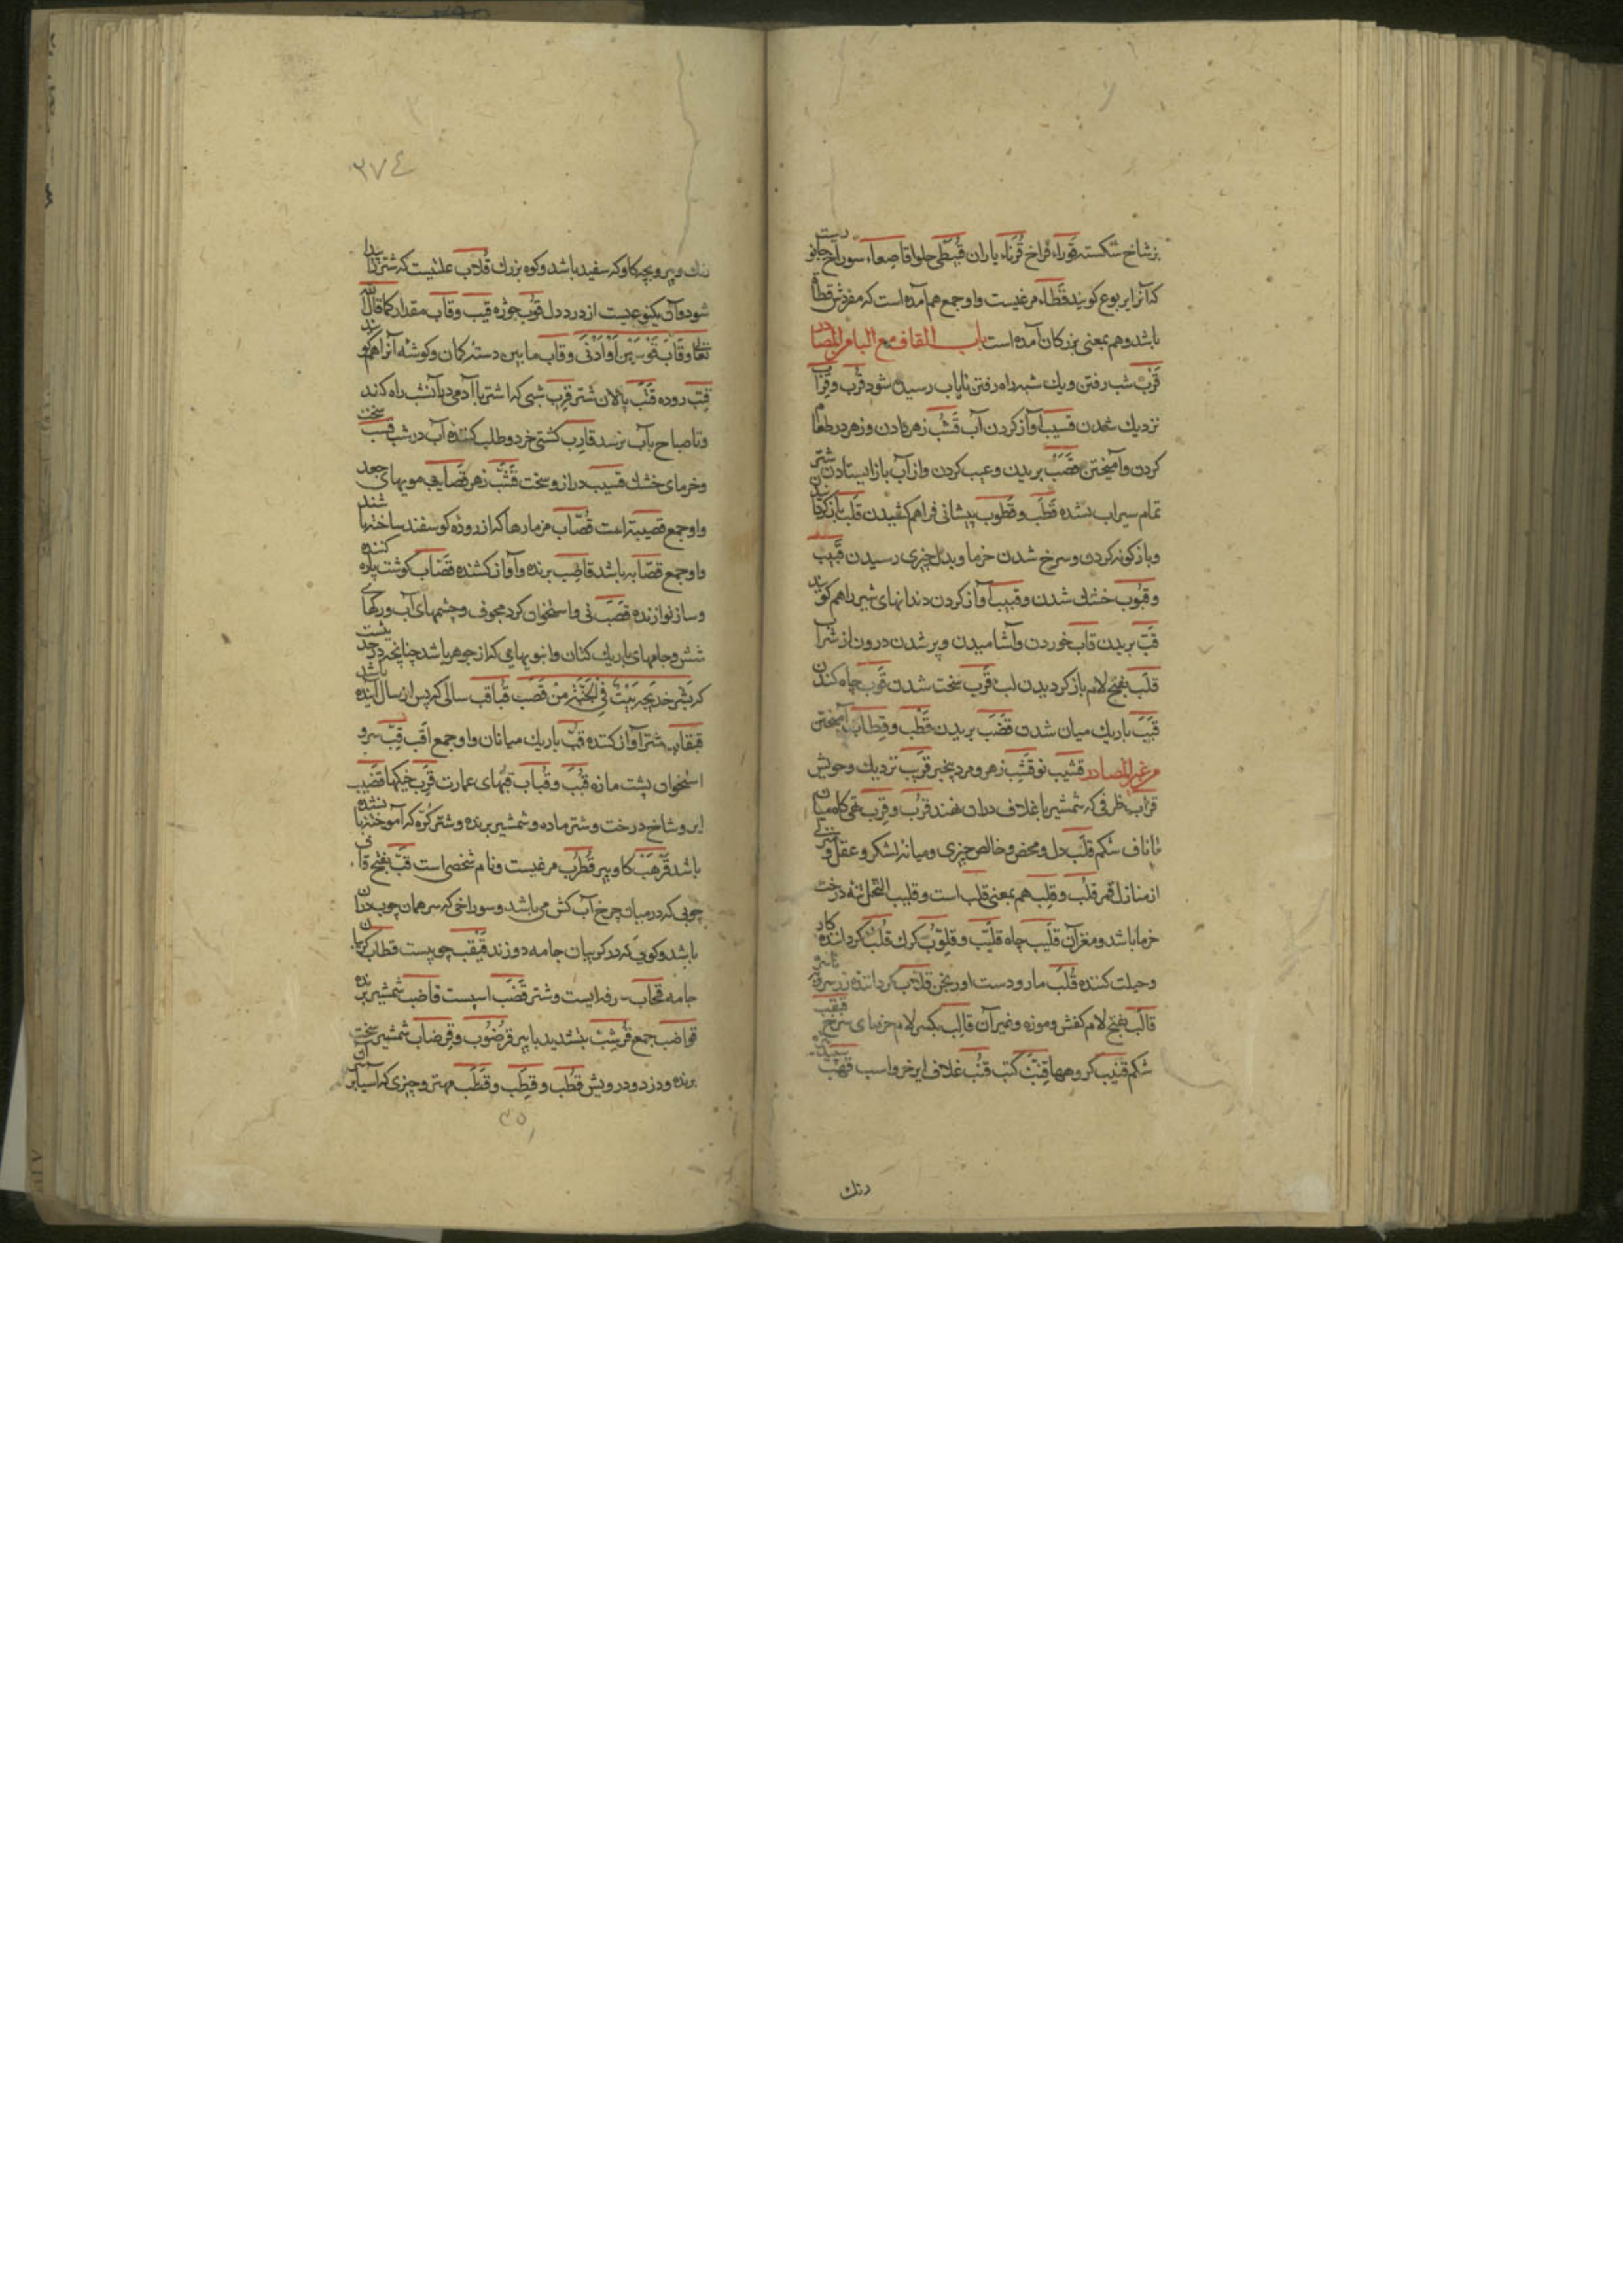 بز شاخ شکسته قوراء فراخ قرناء یاران قبیطی حلوا قاصعاء سوراخ جانوریست
که آنرا یربوع کویند قطاء مرغیست واو جمع هم آمده است که مفردش قطاة
باشد وهم بمعنی بزرکان آمده است باب القاف مع البا من المصادر
قرب شب رفتن ویک شبه راه رفتن تا بآب رسیده شود قرب وقراب
نزدیک شدن قسیب آواز کردن آب قشب زهر دادن وزهر در طعام
کردن وآمیختن قصب بریدن وعیب کردن واز آب باز ایستادن شتر
تمام سیراب نشده قطب وقطوب پیشانی فراهم کشیدن قلب بازکردانیدن
وباز کونه کردن وسرخ شدن خرما وبدل چیزی رسیدن قبیب
وقبوب خشک شدن وقبیب آواز کردن دندانهای شیر را هم کویند
قب بریدن قاب خوردن وآشامیدن وپر شدن درون از شراب
قلب بفتح لام باز کردیدن لب قرب سخت شدن قوب چاه کندن
قبب باریک میان شدن قضب بریدن قطب وقطاب آمیختن
من غیر المصادر قشیب نو قشب زهر ومرد بیخیر قریب نزدیک وخویش
قراب ظرفی که شمشیر با غلاف دران نهند قرب وقرب تهی کاه میان
تا ناف شکم قلب دل ومحض وخالص چیزی ومیانه لشکر وعقل ومنزلی
از منازل قمر قلب وقلب هم بمعنی قلب است وقلیب النخل تنه درخت
خرما باشد ومغز آن قلیب چاه قلیب وقلوب کرک قلب کرداننده کار
وحیلت کننده قلب مار ودست اورنجن قلاب کرداننده
قالب بفتح لام کفش وموزه وغیر آن قالب بکسر لام خرمای سرخ قهقب
شکم قنیب کروهها قنب کنب قنب غلاف ایر خر واسب قهب سپید
رنک
۳۷٤
رنک وپیر وبچه کاو که سفید باشد وکوه بزرک قلاب علتیست که شتر را پیدا
شود وآن یکنوعیست از درد دل قوب جوژه قیب وقاب مقدار کما قال الله
تعالی وقاب قوسین او ادنی وقاب ما بین دسته کمان وکوشه آنرا هم کویند
قتب روده قتب پالان شتر قرب شبی که اشتر با آدمی در آنشب راه کند
وتا صباح بآب برسد قارب کشتی خرد وطلب کننده آب در شب قسب سخت
وخرمای خشک قسیب دراز وسخت قشب زهر قصایب مویهای جعد
واو جمع قصیبة است قصاب مزمارها که از روده کوسفند ساخته باشند
واو جمع قصابه باشد قاصب برنده وآواز کشنده قصاب کوشت پاره کننده
وساز نوازنده قصب نی واستخوان کرد مجوف وچشمهای آب ورکهای
شش وجامهای باریک کتان وانبوبهایی که از جوهر باشد چنانچه در حدیثست
که بشر خدیجه ببیت فی الجنة من قصب قباقب سالی که پس از سال آینده باشد
قبقاب شتر آواز کننده قب باریک میانان واو جمع اقب قب سر و
استخوان پشت مازه قبب وقباب قبهای عمارت قرب خیکها قضیب
ایر وشاخ درخت وشتر ماده وشمشیر برنده وشتر کره که آموخته نشده
باشد قرهب کاو پیر قطرب مرغیست ونام شخصی است قب بفتح قاف
چوبی که در میان چرخ آب کش می باشد وسوراخی که سر همان چوب دران
باشد وکویی که در کریبان جامه دوزند قیقب چوبیست قطاب کریبان
جامه قحاب سرفه ایست وشتر قضب اسپست قاضب شمشیر برنده
قواضب جمع قرشب بتشدید با پیر قرضوب وقرضاب شمشیر سخت
برنده ودزد ودرویش قطب وقطب وقطب مهتر وچیزی که آسیا بر آن